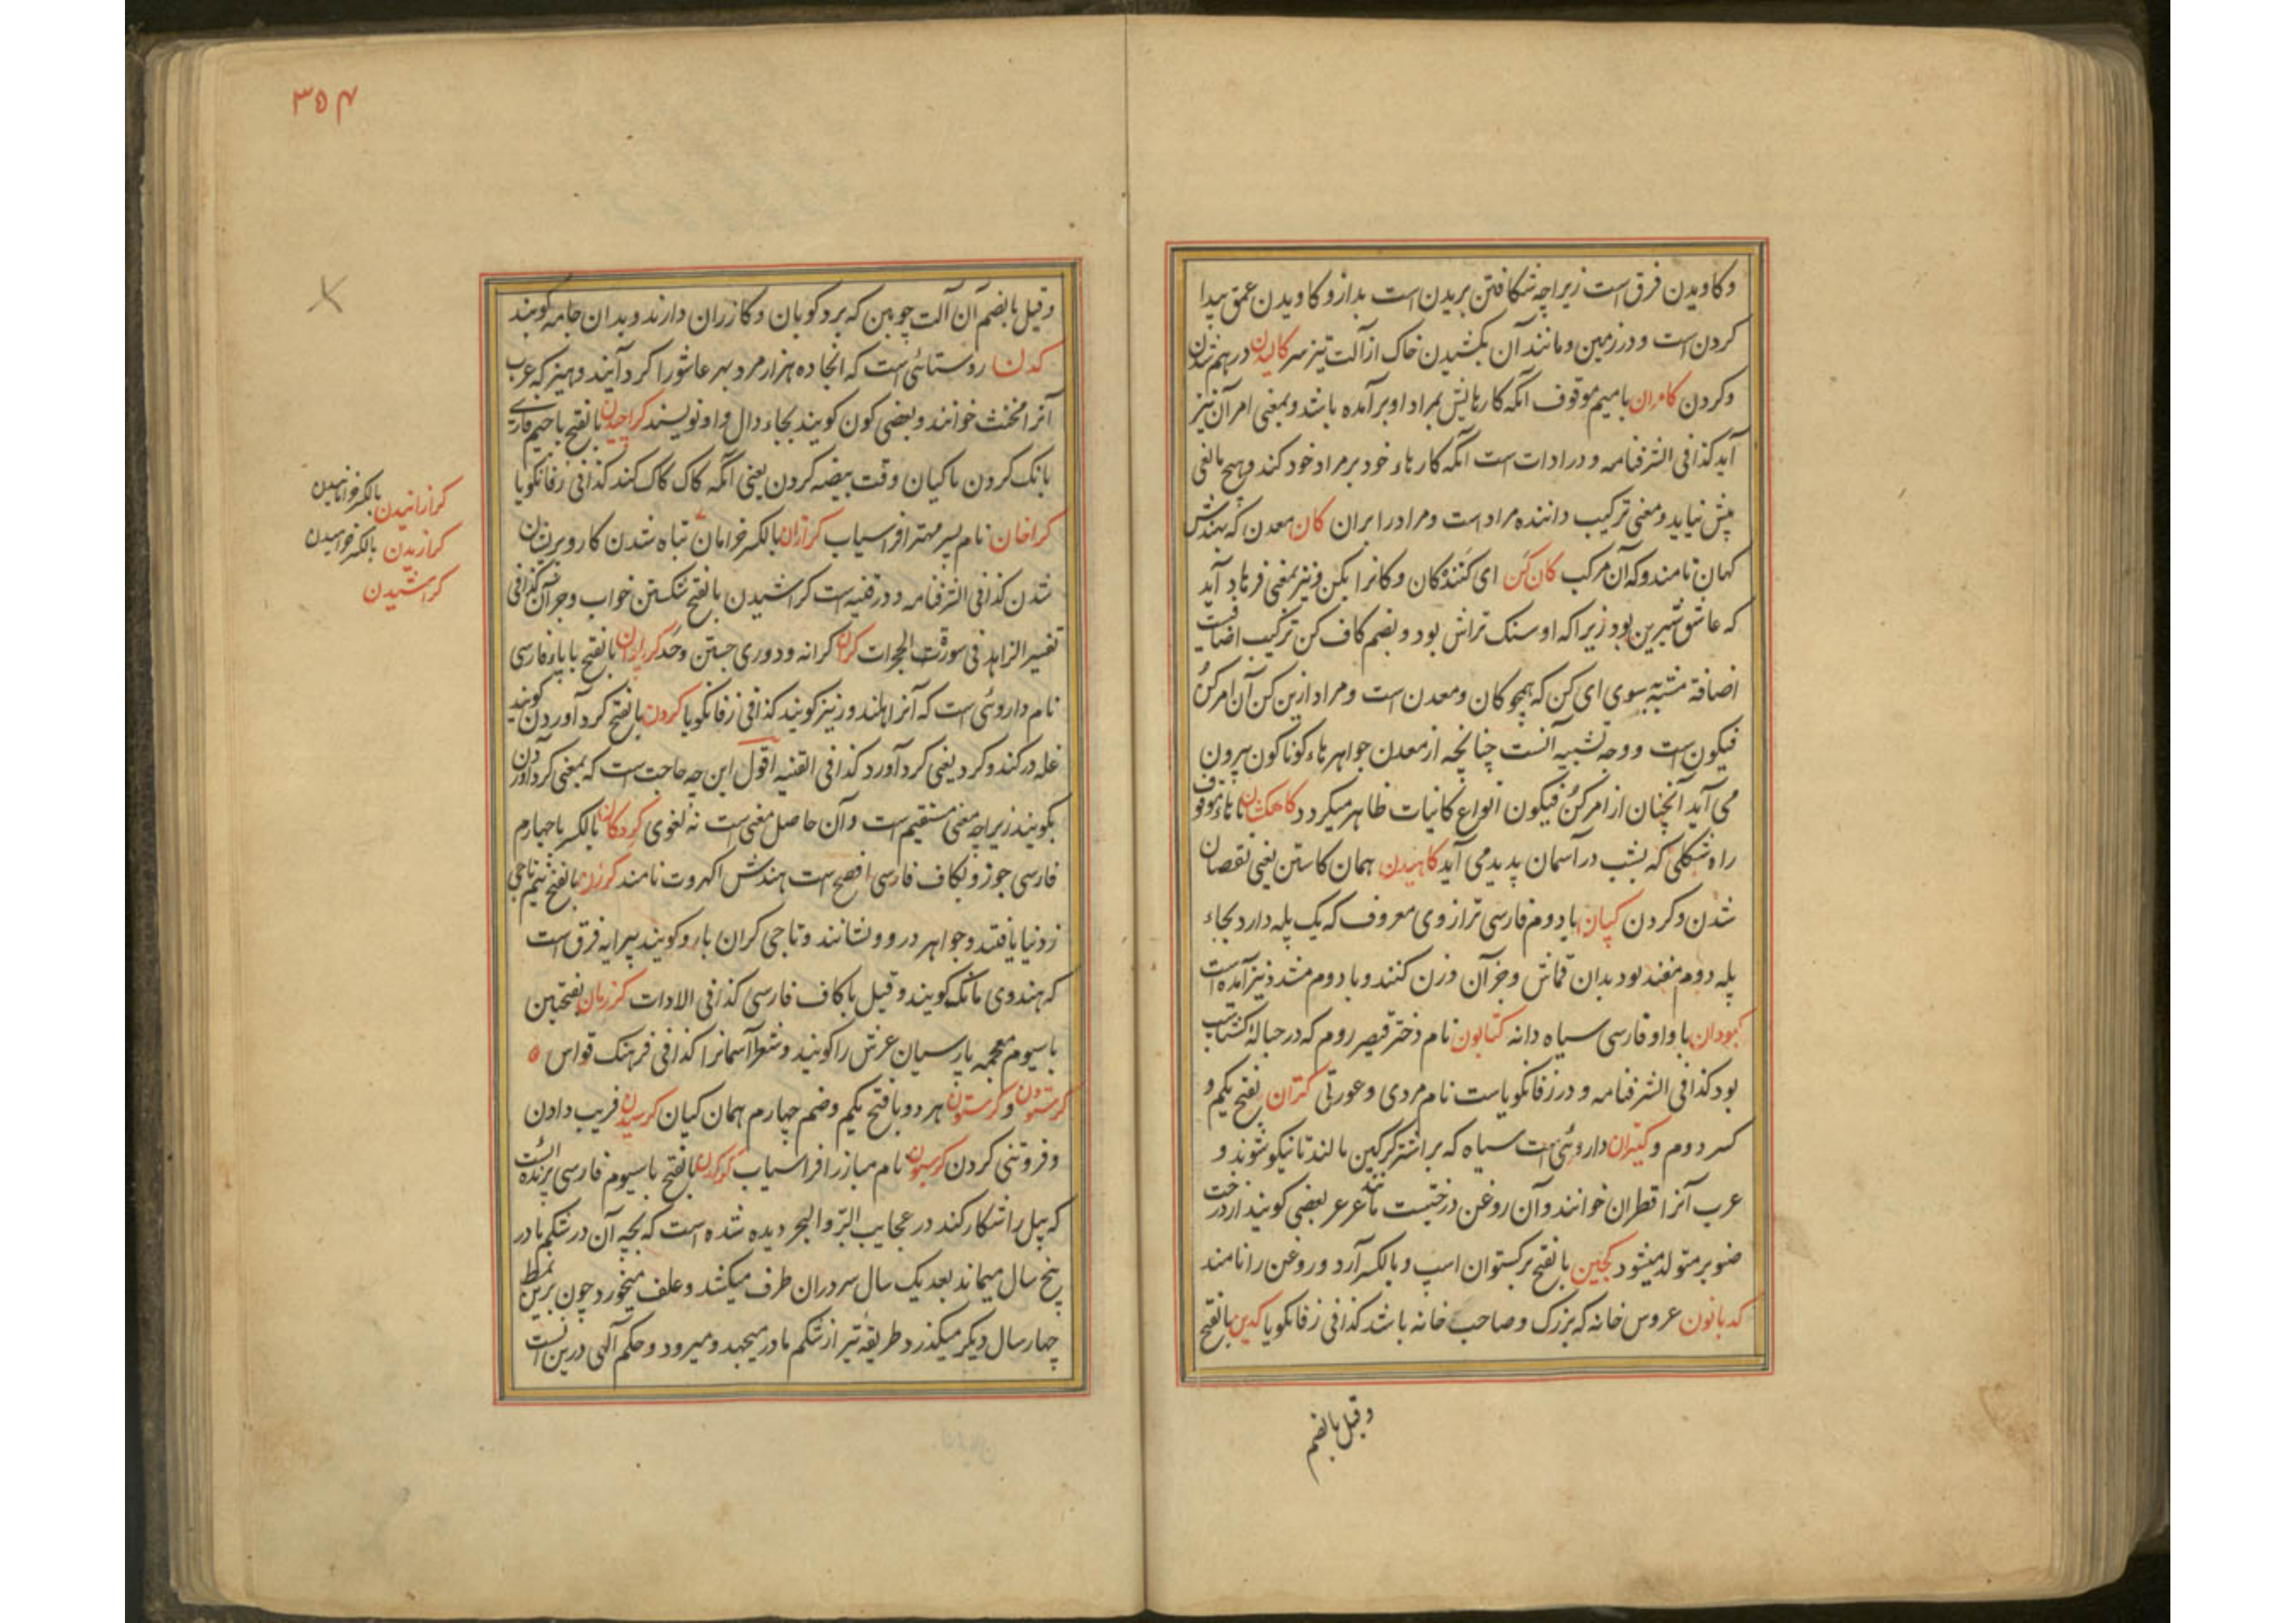 وکاویدن فرق است زیراچه شکافتن بریدن است بدازو کاویدن عمق پیدا
کردن است و در زمین و مانند آن بکشیدن خاک از آلت تیز سر کالیدن درهم شدن
وکردن کامران بامیم موقوف آنکه کارهایش بمراد او برآمده باشد و بمعنی امر آن نیز
آید کذا فی الشرفنامه و در ادات است آنکه کارهاء خود بر مراد خود کند و هیچ مانعی
پیش نیاید و معنی ترکیب داننده مراد است و مراد را بران کان معدن که هندش
کهان نامند و که آن مرکب کان کن ای کننده کان و کانرا بکن و نیز بمعنی فرهاد آید
که عاشق شیرین بود زیراکه او سنک تراش بود و بضم کاف کن ترکیب اضافت
اضافة مشبه بسوی ای کن که همچو کان و معدن است و مراد ازین کن آن امر کن
فیکون است و وجه تشبیه آنست چنانچه از معدن جواهرهاء کوناکون بیرون
می آید آنچنان از امر کن فیکون انواع کانیات ظاهر میکردد کاهکشان باهاء موقوف
راه شکلی که بشب در آسمان پدید می آید کاهیدن همان کاستن یعنی نقصان
شدن و کردن کپان با دوم فارسی ترازوی معروف که یک پله دارد بجاء
پله دوم بدان قماش و جز آن وزن کنند و با دوم مشدد نیز آمده است
کبودان با واو فارسی سیاه دانه کتابون نام دختر قیصر روم که در حباله کشتاسب
بود کذا فی الشرفنامه و در زفانکویاست نام مردی و عورتی کتران بفتح یکم و
کسر دوم و کتیران داروئی است سیاه که بر اشتر کرکین مالند تا نیکو شوند و
عرب آنرا قطران خوانند و آن روغن درختیست مانند عرعر بعضی کویند از درخت
صنوبر متولد میشود کجین بالفتح برکستوان اسپ و بالکسر آرد و روغن را نامند
کدبانون عروس خانه که بزرک و صاحب خانه باشد کذا فی زفانکویا کدین بالفتح
وقیل بالضم
۳۵۴
وقیل بالضم آن آلت چوبین که برد کوبان و کازران دارند و بدان جامه کوبند
کدن روستائی است که آنجا ده هزار مرد بهر عاشورا کرد آیند و هیز که عرب
آنرا مخنث خوانند و بعضی کون کویند بجاء دال واو نویسند کراچیدن بالفتح با جیم فارسی
بانک کردن ماکیان وقت بیضه کردن یعنی آنکه کاک کاک کند کذا فی زفانکویا
کراخان نام پسر مهتر افراسیاب کرازان بالکسر خرامان تباه شدن کار و پریشان
شدن کذا فی الشرفنامه و در قنیه است کراشیدن بالفتح شکستن خواب و جز آن کذا فی
تفسیر الزاهد فی سورة الحجرات کران کرانه و دوری جستن و حد بالفتح با یاء فارسی
نام داروئی است که آنرا نیز کویند کذا فی زفانکویا کردن بالفتح کرد آوردن کویند
غله در کندو کرد یعنی کرد آورد کذا فی القنیه اقول این چه حاجت است که بمعنی کرد آوردن
بکویند زیراچه معنی مستقیم است و آن حاصل معنی است نه لغوی کردکان بالکسر با چهارم
فارسی جوز و بکاف فارسی افصح است هندش اکهروت نامند کرزن بالفتح نیم تاجی
ز دنیا بافتند و جواهر درو نشانند و تاجی کران بار و کویند پیرایه فرق است
که هندوی مانک کویند و قیل با کاف فارسی کذا فی الادات کرزمان بفتحتین
با سیوم معجمه پارسیان عرش را کویند و شعرا آسمانرا کذا فی فرهنک قواس
کرستون و کرستون هر دو بافتح یکم و ضم چهارم همان کپان کرسیدن فریب دادن
و فروتنی کردن کرسیون نام مبارز افراسیاب کرکدن بالفتح با سیوم فارسی پرنده ایست
که پیل را شکار کند در عجایب البر و البحر دیده شده است که بچه آن در شکم مادر
پنج سال میماند بعد یک سال سر دران طرف میکشد و علف میخورد چون برین نمط
چهار سال دیکر میکذرد طریقه تیر از شکم مادر میجهد و میرود و حکم الهی درین است
کرازانیدن بالکسر خرامانیدن
کرازیدن بالکسر خرامیدن
کراشیدن